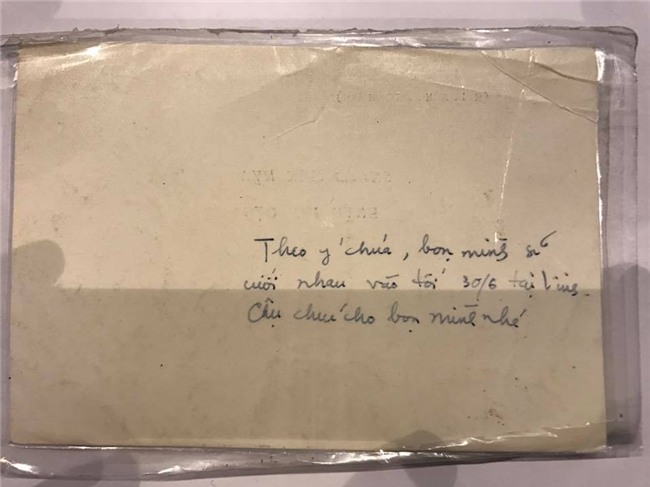 Theo ý chúa, bọn mình sẽ
cưới nhau vào tối 30/6 tại
Cậu chúc cho bọn mình nhé